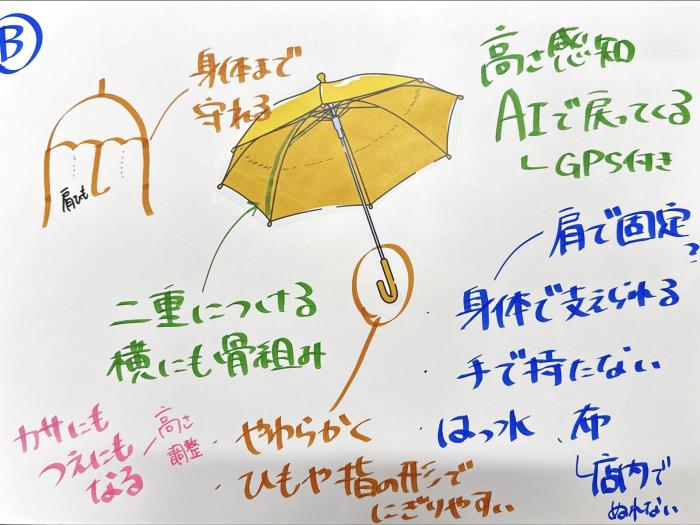 B
身体まで
守れる
肩ひも
高さ感知
AIで戻ってくる
└GPS付き
肩で固定?
身体で支えられる
・手で持たない
・はっ水、布
└店内で
ぬれない
二重につける
横にも骨組み
カサにも
つえにも
なる
高さ
調整
・やわらかく
・ひもや指の形で
にぎりやすい